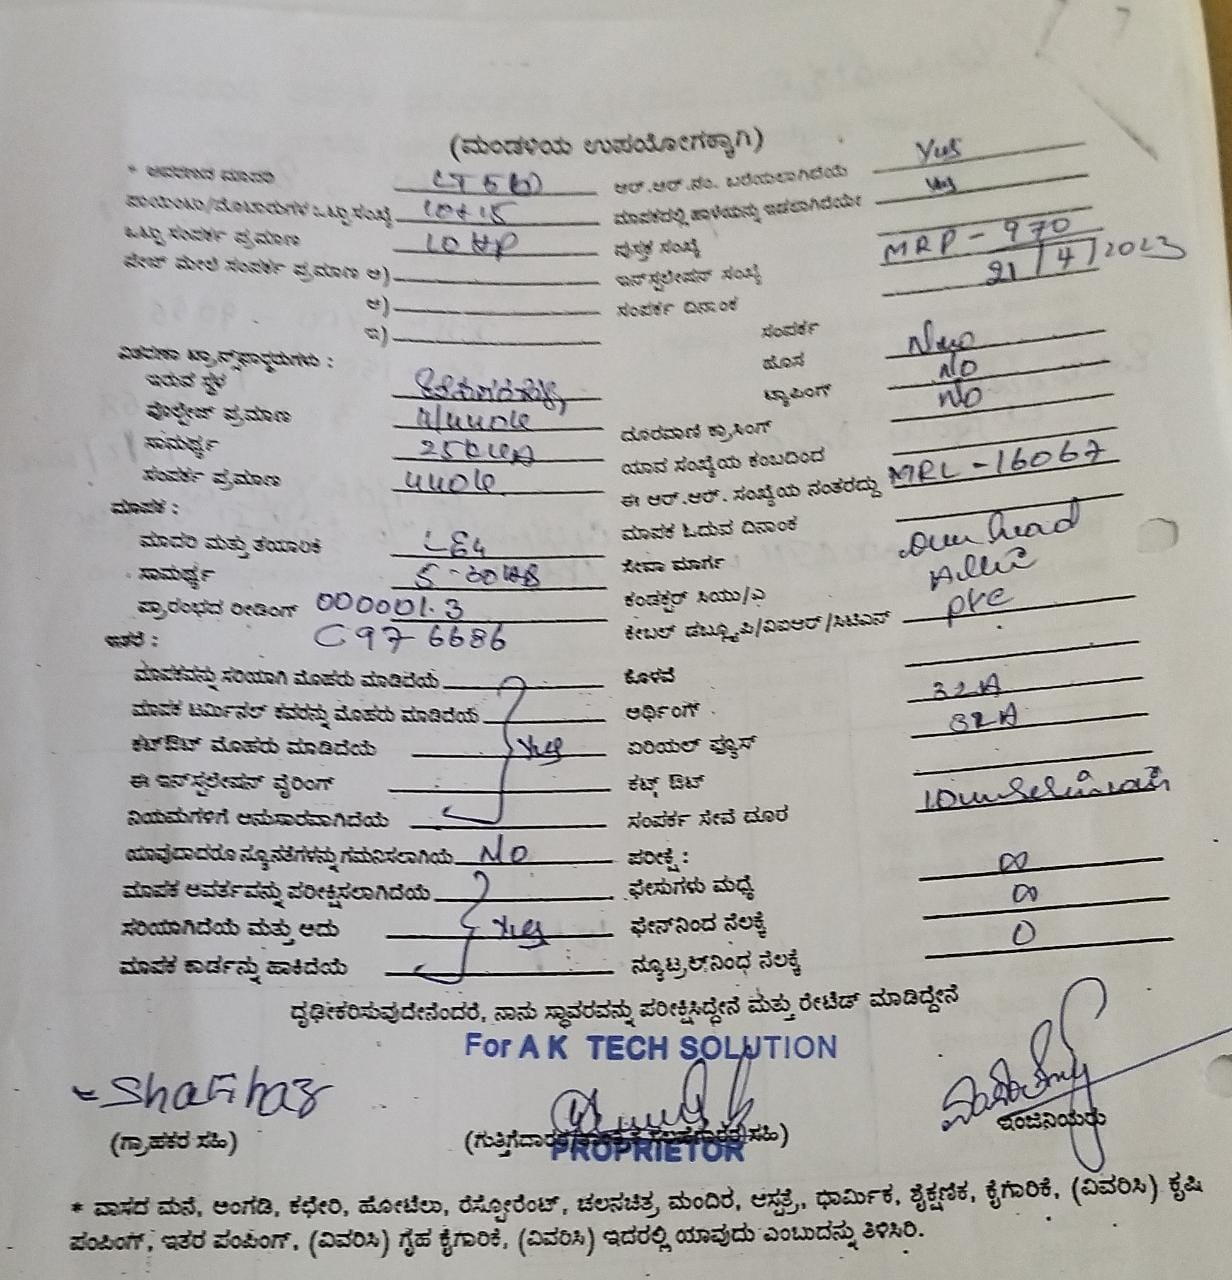 (ಮಂಡಳಿಯ ಉಪಯೋಗಕ್ಕಾಗಿ)
* ಆವರಣದ ಮಾದರಿ ಆರ್.ಆರ್.ನಂ. ಬರೆಯಲಾಗಿದೆಯೆ Yes
ಪಾಯಿಂಟು/ಮೋಟಾರುಗಳ ಒಟ್ಟು ಸಂಖ್ಯೆ 10+15 ಮಾಪಕದಲ್ಲಿ ಹಾಳೆಯನ್ನು ಇಡಲಾಗಿದೆಯೇ Yes
ಒಟ್ಟು ಸಂಪರ್ಕ ಪ್ರಮಾಣ 10 HP ಪುಸ್ತಕ ಸಂಖ್ಯೆ MRP - 970
ಪೇಜ್ ಮೇಲೆ ಸಂಪರ್ಕ ಪ್ರಮಾಣ ಅ) ಇನ್‌ಸ್ಟಲೇಷನ್ ಸಂಖ್ಯೆ 21/4/2023
ಆ) ಸಂಪರ್ಕ ದಿನಾಂಕ
ಇ) ಸಂಪರ್ಕ
ವಿತರಣಾ ಟ್ರಾನ್ಸ್‌ಫಾರ್ಮರುಗಳು : ಹೊಸ New
ಇರುವ ಸ್ಥಳ ಟ್ಯಾಪಿಂಗ್ NO
ವೋಲ್ಟೇಜ್ ಪ್ರಮಾಣ ದೂರವಾಣಿ ಕ್ರಾಸಿಂಗ್ NO
ಸಾಮರ್ಥ್ಯ ಯಾವ ಸಂಖ್ಯೆಯ ಕಂಬದಿಂದ
ಸಂಪರ್ಕ ಪ್ರಮಾಣ ಈ ಆರ್.ಆರ್. ಸಂಖ್ಯೆಯ ನಂತರದ್ದು MRL - 16067
ಮಾಪಕ :
ಮಾದರಿ ಮತ್ತು ತಯಾರಿಕೆ ಮಾಪಕ ಓದುವ ದಿನಾಂಕ
ಸಾಮರ್ಥ್ಯ ಸೇವಾ ಮಾರ್ಗ Over head
ಪ್ರಾರಂಭದ ರೀಡಿಂಗ್ 000001.3 ಕಂಡಕ್ಟರ್ ಸಿಯು/ಎ
ಇತರೆ : C976686 ಕೇಬಲ್ ಡಬ್ಲ್ಯೂಪಿ/ವಿಐಆರ್/ಸಿಟಿಎಸ್ pvc
ಮಾಪಕವನ್ನು ಸರಿಯಾಗಿ ಮೊಹರು ಮಾಡಿದೆಯೆ ಕೊಳವೆ
ಮಾಪಕ ಟರ್ಮಿನಲ್ ಕವರನ್ನು ಮೊಹರು ಮಾಡಿದೆಯೆ ಅರ್ಥಿಂಗ್ 32 A
ಕಟ್‌ಔಟ್ ಮೊಹರು ಮಾಡಿದೆಯೆ Yes ಏರಿಯಲ್ ಫ್ಯೂಸ್ 32 A
ಈ ಇನ್‌ಸ್ಟಲೇಷನ್ ವೈರಿಂಗ್ ಕಟ್ಸ್ ಔಟ್
ನಿಯಮಗಳಿಗೆ ಅನುಸಾರವಾಗಿದೆಯೆ ಸಂಪರ್ಕ ಸೇವೆ ದೂರ
ಯಾವುದಾದರೂ ನ್ಯೂನತೆಗಳನ್ನು ಗಮನಿಸಲಾಗಿಯೆ NO ಪರೀಕ್ಷೆ :
ಮಾಪಕ ಆವರ್ತವನ್ನು ಪರೀಕ್ಷಿಸಲಾಗಿದೆಯೆ ಫೇಸುಗಳು ಮಧ್ಯೆ ∞
ಸರಿಯಾಗಿದೆಯೆ ಮತ್ತು ಅದು Yes ಫೇಸ್‌ನಿಂದ ನೆಲಕ್ಕೆ ∞
ಮಾಪಕ ಕಾರ್ಡನ್ನು ಹಾಕಿದೆಯೆ ನ್ಯೂಟ್ರಲ್‌ನಿಂಧ ನೆಲಕ್ಕೆ 0
ದೃಢೀಕರಿಸುವುದೇನೆಂದರೆ, ನಾನು ಸ್ಥಾವರವನ್ನು ಪರೀಕ್ಷಿಸಿದ್ದೇನೆ ಮತ್ತು ರೇಟೆಡ್ ಮಾಡಿದ್ದೇನೆ
For A K TECH SOLUTION
(ಗ್ರಾಹಕರ ಸಹಿ) ಇಂಜಿನಿಯರು
PROPRIETOR
* ವಾಸದ ಮನೆ, ಅಂಗಡಿ, ಕಛೇರಿ, ಹೋಟೆಲು, ರೆಸ್ಟೋರೆಂಟ್, ಚಲನಚಿತ್ರ, ಮಂದಿರ, ಆಸ್ಪತ್ರೆ, ಧಾರ್ಮಿಕ, ಶೈಕ್ಷಣಿಕ, ಕೈಗಾರಿಕೆ, (ವಿವರಿಸಿ) ಕೃಷಿ
ಪಂಪಿಂಗ್, ಇತರ ಪಂಪಿಂಗ್, (ವಿವರಿಸಿ) ಗೃಹ ಕೈಗಾರಿಕೆ, (ವಿವರಿಸಿ) ಇದರಲ್ಲಿ ಯಾವುದು ಎಂಬುದನ್ನು ತಿಳಿಸಿರಿ.